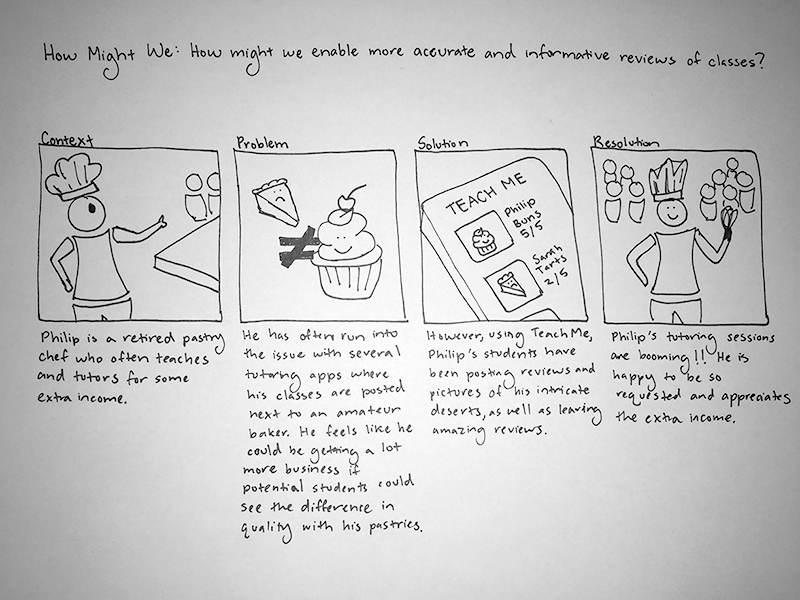 How Might We: How might we enable more accurate and informative reviews of classes?
Context
Philip is a retired pastry
chef who often teaches
and tutors for some
extra income.
Problem
He has often run into
the issue with several
tutoring apps where
his classes are posted
next to an amateur
baker. He feels like he
could be getting a lot
more business if
potential students could
see the difference in
quality with his pastries.
Solution
TEACH ME
Philip
Buns
5/5
Sarah
Tarts
2/5
However, using TeachMe,
Philip's students have
been posting reviews and
pictures of his intricate
deserts, as well as leaving
amazing reviews.
Resolution
Philip's tutoring sessions
are booming!! He is
happy to be so
requested and appreciates
the extra income.